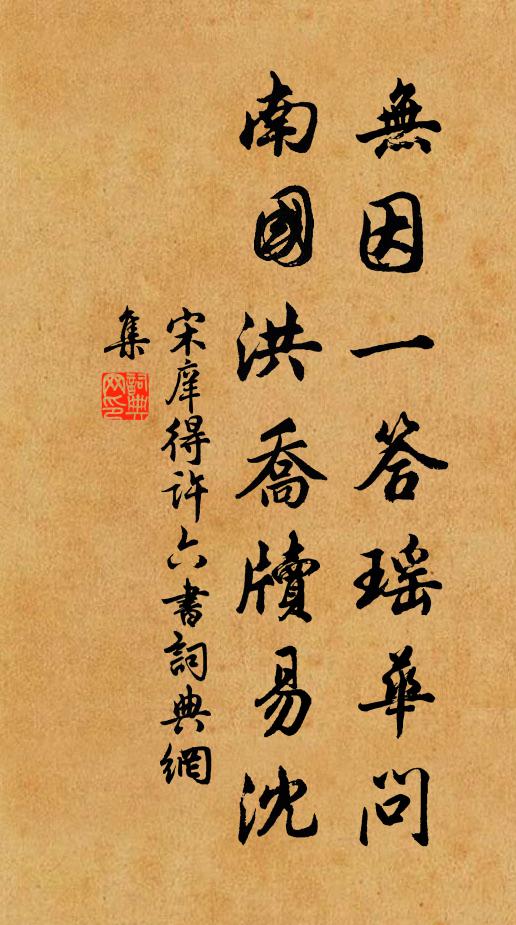 無因一答瑶華問
南國洪喬牘易沈
宋庠得許六書詞典網
集
詞典網印